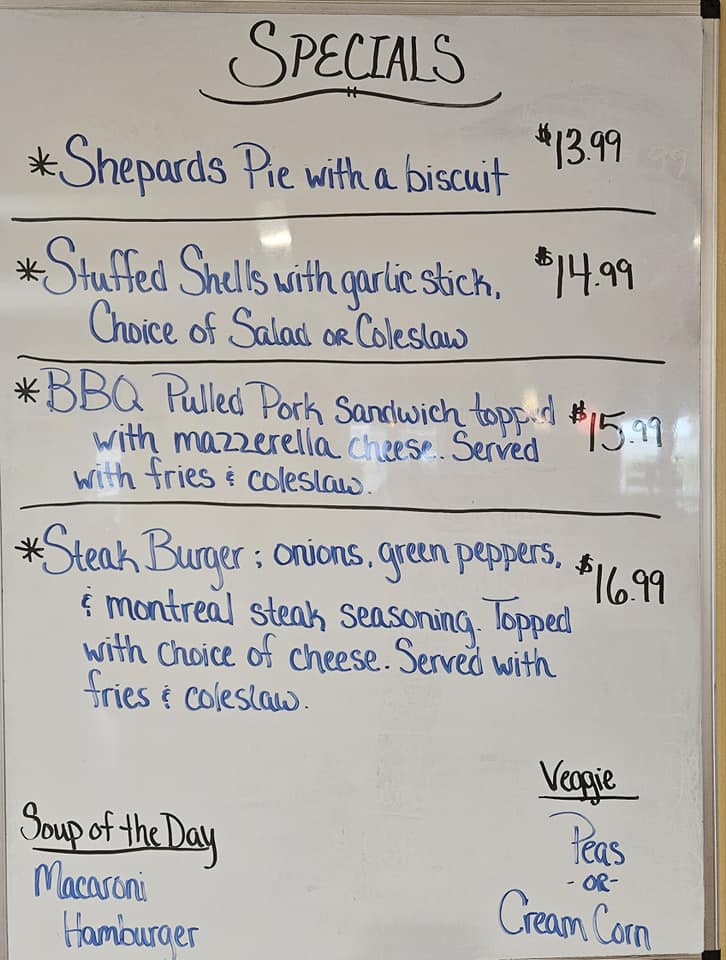 SPECIALS
*Shepards Pie with a biscuit $13.99
*Stuffed Shells with garlic stick, $14.99
Choice of Salad or Coleslaw
*BBQ Pulled Pork Sandwich topped $15.99
with mazzerella cheese. Served
with fries & coleslaw.
*Steak Burger; onions, green peppers, $16.99
& montreal steak seasoning. Topped
with choice of cheese. Served with
fries & coleslaw.
Soup of the Day
Macaroni
Hamburger
Veggie
Peas
-OR-
Cream Corn